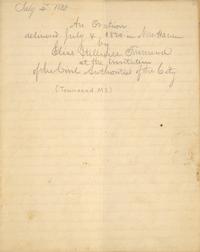 July 4, 1820
An Oration
delivered July 4 1820 in New Haven
by
Elias Townsend
at the invitation
of the Civil Authorities of the City
(Townsend MS)